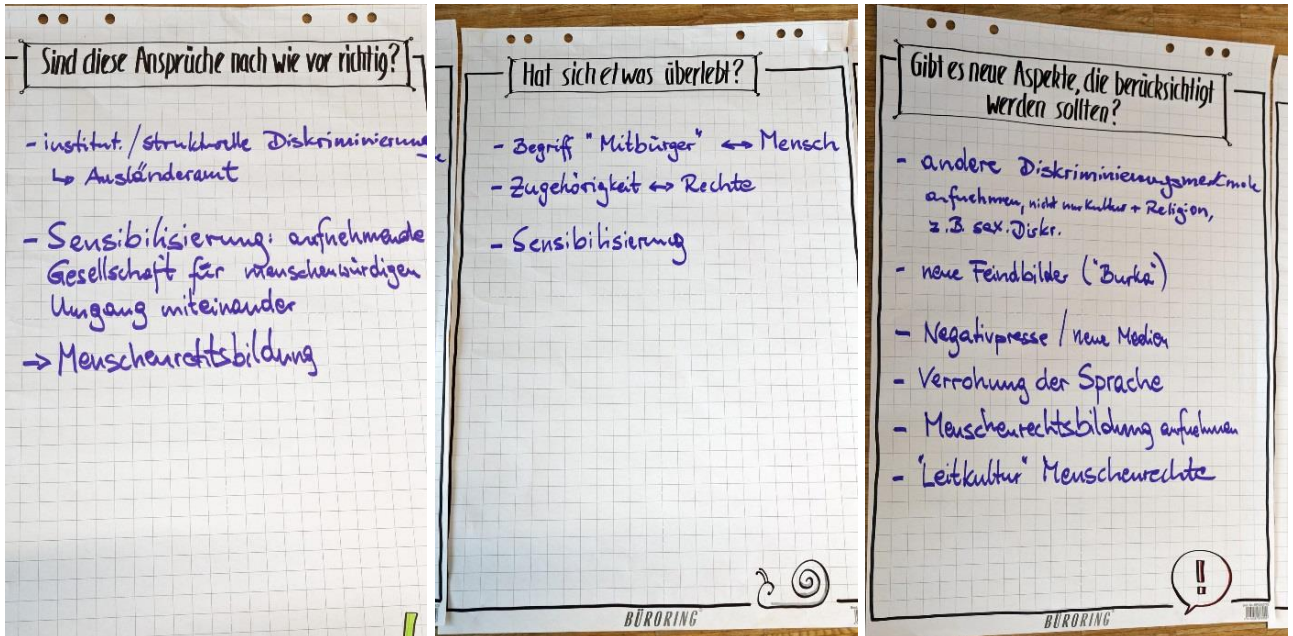 Sind diese Ansprüche nach wie vor richtig?
- institut./strukturelle Diskriminierung
↳ Ausländeramt
- Sensibilisierung: aufnehmende
Gesellschaft für menschenwürdigen
Umgang miteinander
→ Menschenrechtsbildung
Hat sich etwas überlebt?
- Begriff "Mitbürger" ↔ Mensch
- Zugehörigkeit ↔ Rechte
- Sensibilisierung
BÜRORING
Gibt es neue Aspekte, die berücksichtigt
werden sollten?
- andere Diskriminierungsmerkmale
aufnehmen, nicht nur Kultur + Religion,
z.B. sex. Diskr.
- neue Feindbilder ("Burka")
- Negativpresse / neue Medien
- Verrohung der Sprache
- Menschenrechtsbildung aufnehmen
- "Leitkultur" Menschenrechte
!
BÜRORING